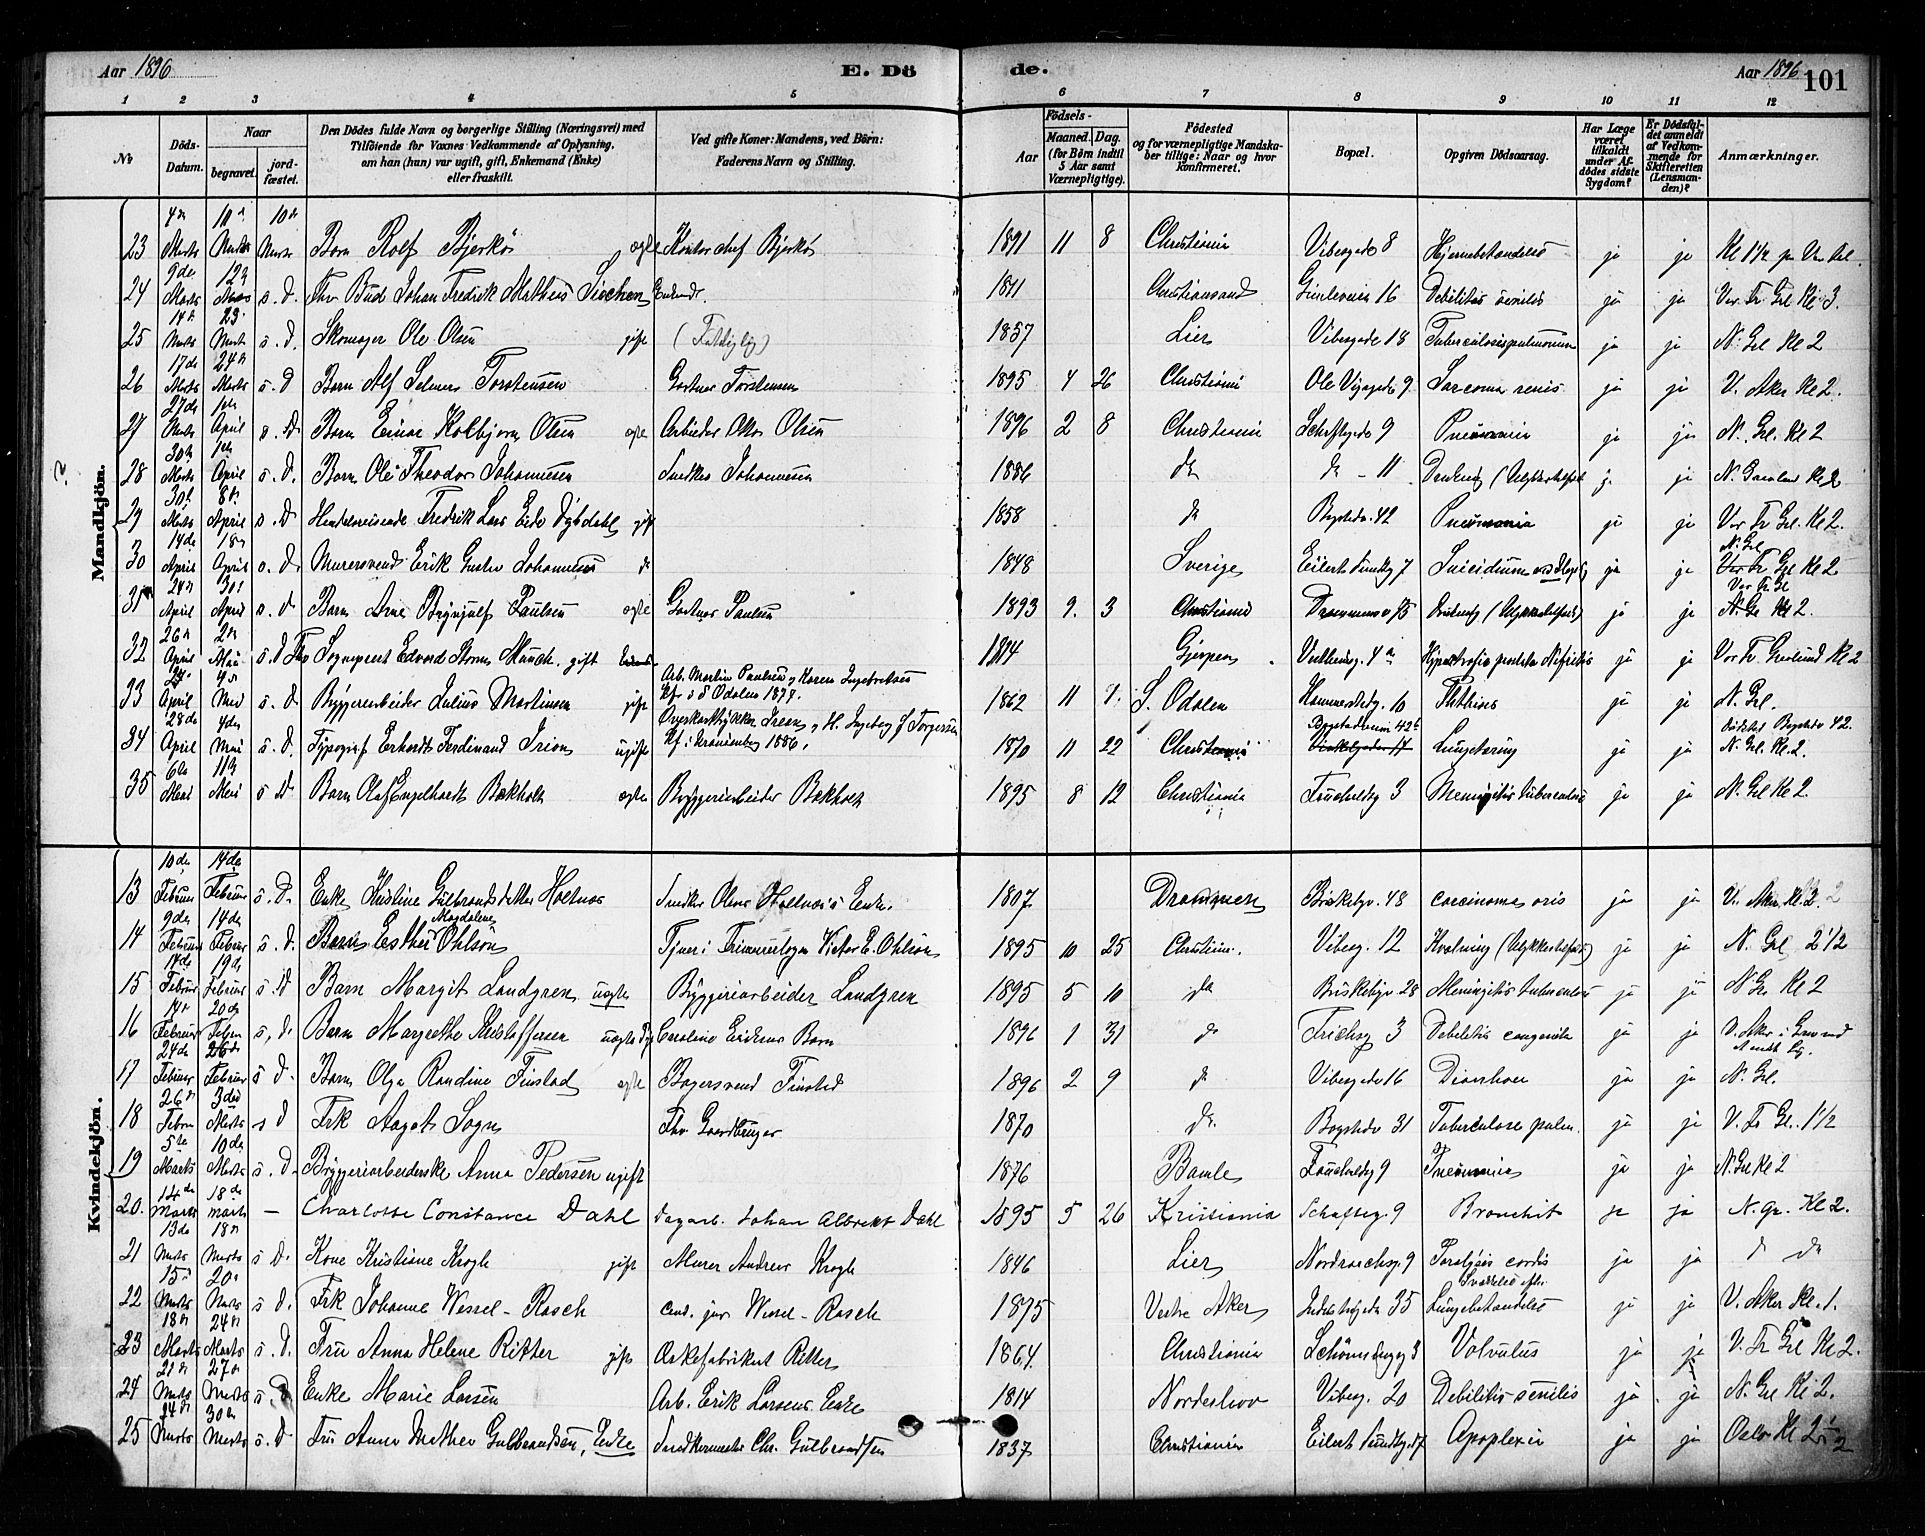 Aar 1896
E. Döde.
Aar 1896
101
1 2 3 4 5 6 7 8 9 10 11 12
No
Döds-Datum.
Naar
begravet.
jordfæstet.
Den Dödes fulde Navn og borgerlige Stilling (Næringsvei) med Tilföiende for Voxnes Vedkommende af Oplysning, om han (hun) var ugift, gift, Enkemand (Enke) eller fraskilt.
Ved gifte Koner: Mandens, ved Börn: Faderens Navn og Stilling.
Födsels-
Aar
Maaned. Dag.
(for Börn indtil 5 Aar samt Værnepligtige).
Födested og for værnepligtige Mandskaber tillige: Naar og hvor konfirmeret.
Bopæl.
Opgiven Dödsaarsag.
Har Læge været tilkaldt under Afdödes sidste Sygdom?
Er Dödsfaldet anmeldt af Vedkommende for Skifteretten (Lensmanden)?
Anmærkninger.
Mandkjön.
23 4de Marts 10de Marts Barn Rolf Bjerkö ægte Kontorchef Bjerkö 1891 11 8 Christiania Vibesgade 8 Hjernebetændelse ja ja
24 9de Marts 12 Marts s. D. Fhv Bud Johan Fredrik Matheus Enkemd. 1811 Christianssand 16 Debilitas senilis ja ja Vor Fr Grl Kl 3.
25 14 Marts 23 Marts s. D. Skomager Ole Olsen gift (Fattiglig) 1857 Lier Vibesgade 18 Tuberculosis pulmonum ja ja N. Grl Kl 2
26 17de Marts 24 Marts s. D Barn Alf Selmer Torstensen Gartner Torstensen 1895 4 26 Christiania Ole Vigsgade 9 Sarcoma renis ja ja V. Aker Kl 2.
27 27de Marts 1ste April s. D Barn Einar Kolbjørn Olsen ægte Arbeider Olsen 1896 2 8 Christiania Schaftsgade 9 Pneumonia ja ja N. Grl. Kl 2
28 30 Marts 1ste April s. D. Barn Ole Theodor Johannesen Snedker Johannesen 1886 do do - 11 Drukning (Ulykkestilfæld ja ja N. Gravlund Kl 2
29 30 Marts 8de April s. D Handelsreisende Fredrik Lars Eide Dybdahl gift 1858 do Bogstadv. 42 Pneumonia ja ja Vor Fr Grl. Kl 2.
30 14de April 18 April s. D. Murersvend Erik Gustav Johannesen do 1848 Sverige Eilert Sundtsg 7 Suicidium ja ja N. Grl Kl 2
31 24 April 30 April s. D Barn Arne Brynjulf Paulsen ægte Gartner Paulsen 1893 9. 3 Christiania Drammensv 75 Drukning (Ulykkestilfæld) ja ja Vor Fr Gr Kl 2.
32 26 April 2 Mai s. D Fhv Sogneprest Edvard Storm Munch. gift 1814 Gjerpen 4a Hypertrofia prostata Nefritis ja ja Vor Fr Gravlund Kl 2
33 April Mai s. D Bryggeriarbeider Julius Martinsen gift Arb. Martin Paulsen og Karen Ingebretsen Kf i S Odalen 1877. 1862 11 S. Odalen Hammerstadg. 10 Phthisis ja ja N. Grl.
34 28de April 4de Mai s. D. Typograf Erhardt Ferdinand Irion ugift Overkanthykker Irion og H. Ingeborg f Torgersen Kf. i Kronenberg 1886. 1870 11 22 Christiania Bogstadveien 42b Lungetæring ja ja Dödsted Bogstadv 42. N. Grl. Kl. 2.
35 6te Mai 11 Mai s. D Barn Olaf Engelhardt Bækholt ægte Bryggeriarbeider Bækholt 1895 8 12 Christiania Fauchaldsg 3 Meningitis tuberculosa ja ja N. Grl Kl 2.
Kvindekjön.
13 10de Februar 14de Februar s. D. Enke Kristine Gulbrandsdatter Holtnæs Snedker Olaves Holtnæs's Enke. 1807 Drammen Briskebyv. 48 carcinoma oris ja ja V. Aker Kl. 2.
14 9de Februar 14de Februar s. D. Barn Esther Magdalene Ohlsön Tjener i Frimurerlogen Victor E. Ohlsön 1895 10 25 Christiania. Vibesg. 12 Kvælning (Ulykkestilfæld) ja ja N. Grl 2 1/2
15 14de Februar 19de Februar s. D Barn Margit Landgren uægte Bryggeriarbeider Landgren 1895 5 10 do Briskebyv 28 Meningitis tuberculosa ja ja N Gr. Kl 2
16 Februar 20de Febr s. D. Barn Margrethe Kristoffersen uægte Caroline Eriksens Barn 1896 1 31 do Frichsg 3 Debilitas congenita ja ja V. Aker i Grund
17 24de Februar 26de Februar s D. Barn Olga Randine Finstad ægte Bagersvend Finstad 1896 2 9 do Vibesgade 16 Diarrhoe ja ja N. Grl.
18 26 Febr 3die Marts s D Frk Aagot Sogn Fhv Gaardbruger 1870 do Bogstadv 31 Tuberculose pulm. ja ja V. Fr Gl. 1 1/2
19 5te Marts 10de Marts s. D. Bryggeriarbeiderske Anna Pedersen ugift 1876 Bamle Fauchaldsg 9 Pneumonia ja ja N. Grl Kl 2
20. 14de Marts 18de marts — Charlotte Constance Dahl Dagarb. Johan Albrekt Dahl 1895 5 26 Kristiania Schaftsg. 9 Bronchit ja ja N. Gr. Kl 2.
21 13de Marts 18 Marts s D. Kone Kristiane Krogh gift Murer Andreas Krogh 1846 Lier Nordraachsg. 9 Paralysis cordis ja ja do do
22 15 Marts 20 Marts s D. Frk Johanne Wessel-Rasch cand. jur Wessel-Rasch 1875 Vestre Aker Industrigaden 35 Svækkelse efter Lungebetændelse ja ja V. Aker Kl. 1.
23 18 Marts 24 Marts s. D. Fru Anna Helene Ritter gift Æskefabrikant Ritter 1864 Christiania Schönings 3 Volvulus ja ja V. Fr Grl Kl 2.
24 21 Marts 27 Marts s. D Enke Marie Larsen Arb. Erik Larsens Enke 1814 Norderhov Vibesg. 20 Debilitas senilis ja ja N. Grl Kl 2.
25 24 Marts 30 Marts s. D Fru Anna Mathea Gulbrandsen, Enke Snedkermester Chr. Gulbrandsen 1837 Christiania Eilert Sundtsg. 7 Apoplexia ja ja Oslo Kl 2 1/2